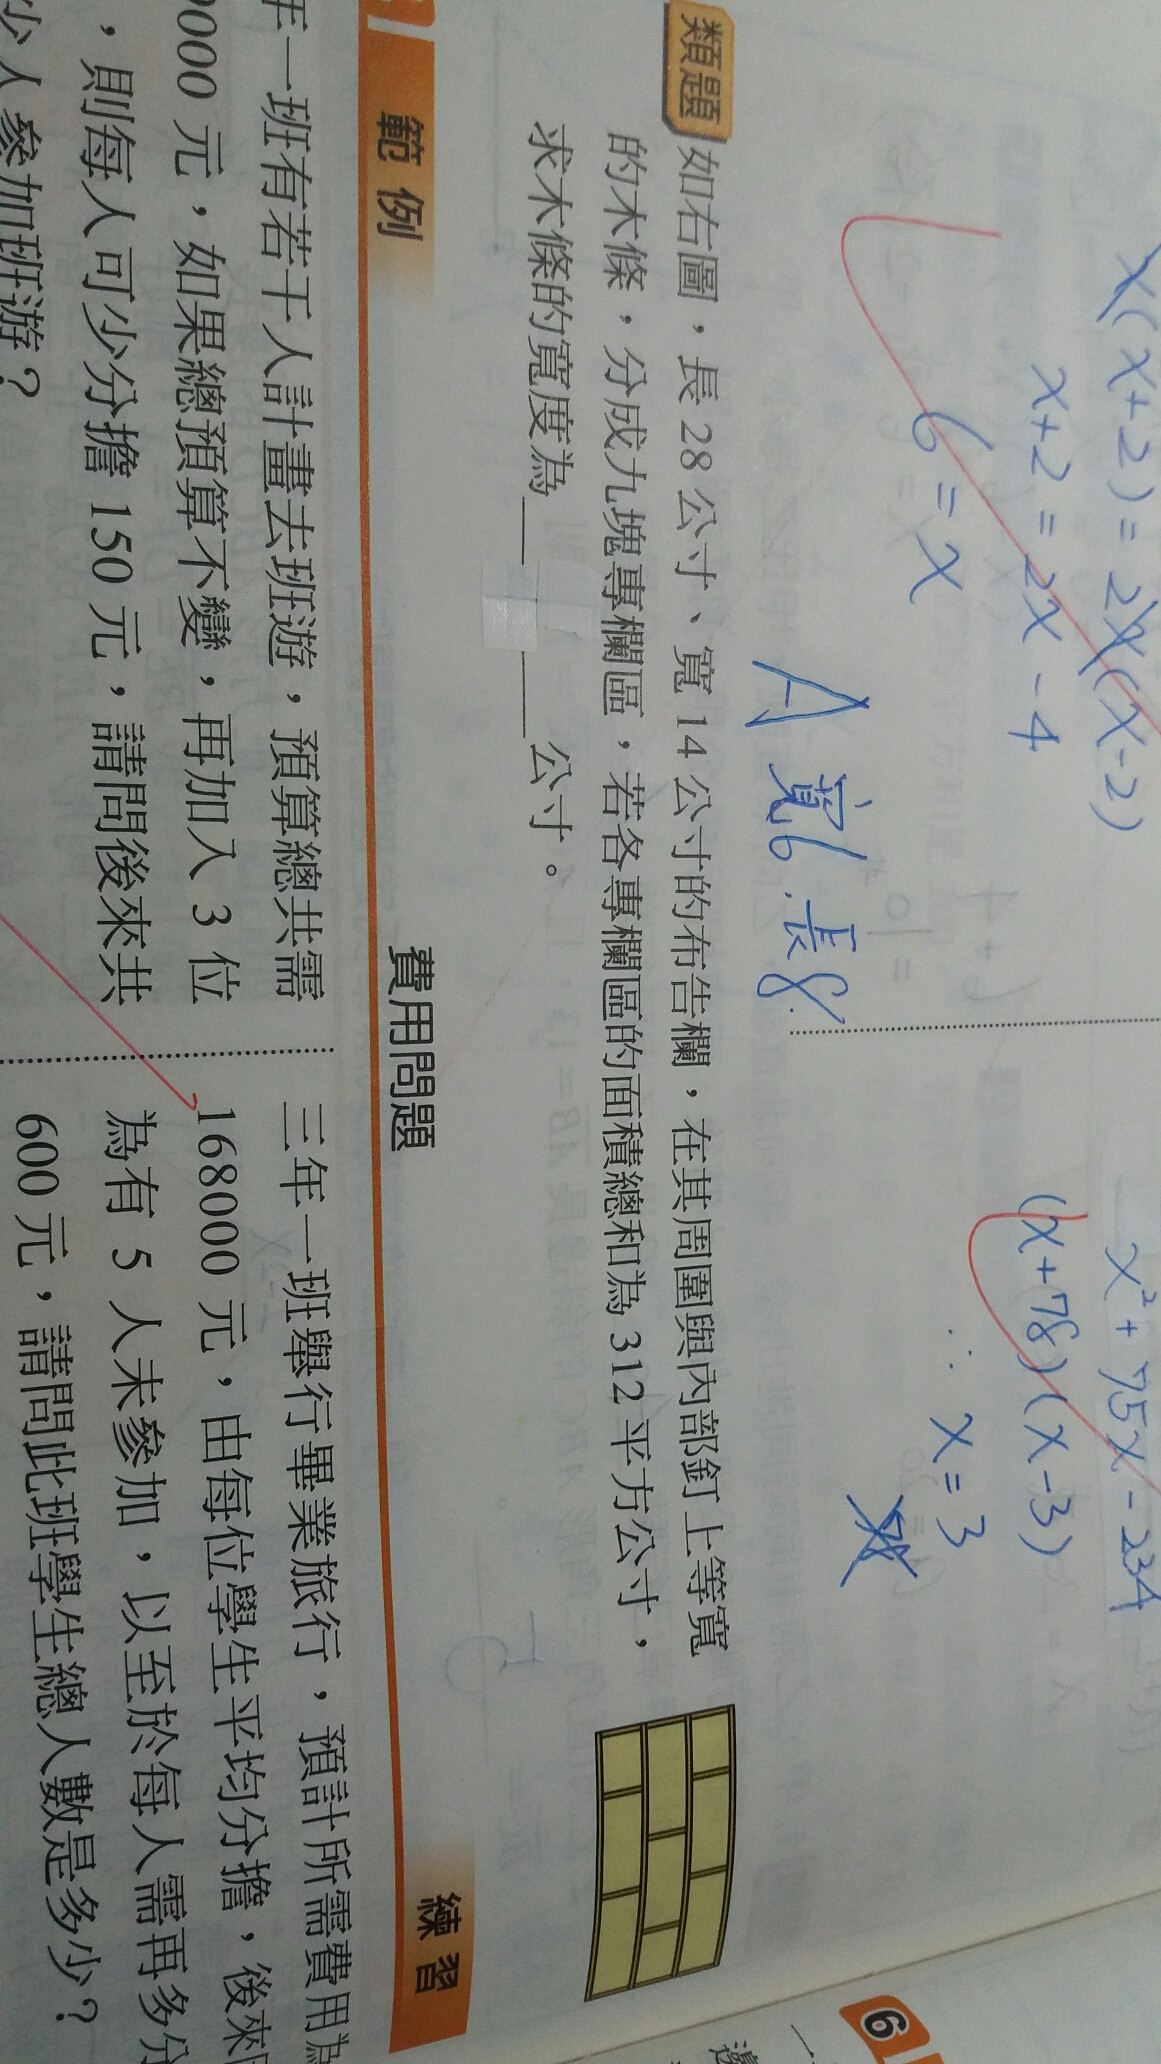 x(x+2)=2x(x-2)
x+2=2x-4
6=x
A 寬6.長8
x²+75x-234
(x+78)(x-3)
∴x=3
類題 如右圖，長 28 公寸、寬 14 公寸的布告欄，在其周圍與內部釘上等寬
的木條，分成九塊專欄區，若各專欄區的面積總和為 312 平方公寸，
求木條的寬度為______公寸。
範例
費用問題
練習
年一班有若干人計畫去班遊，預算總共需
000 元，如果總預算不變，再加入 3 位
，則每人可少分擔 150 元，請問後來共
少人參加班游？
三年一班舉行畢業旅行，預計所需費用為
168000 元，由每位學生平均分擔，後來
為有 5 人未參加，以至於每人需再多分
600 元，請問此班學生總人數是多少？
6